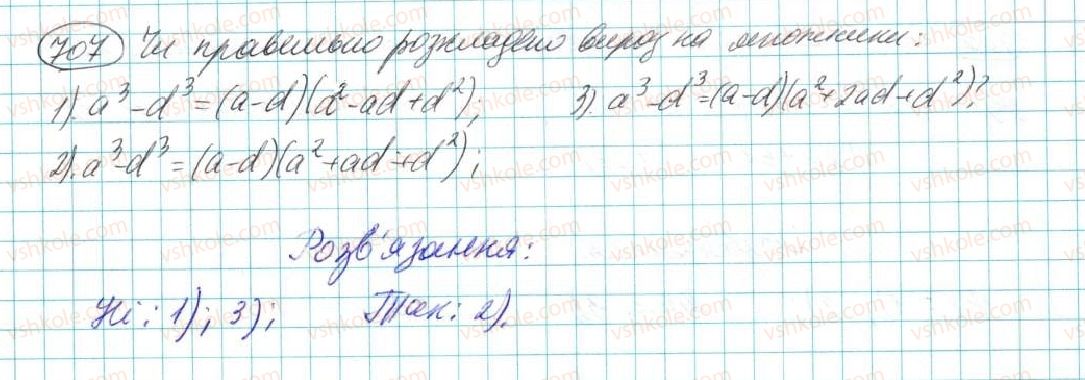 707 Чи правильно розкладено вираз на множники:
1). a³-d³=(a-d)(a²-ad+d²); 3). a³-d³=(a-d)(a²+2ad+d²)?
2). a³-d³=(a-d)(a²+ad+d²);
Розв'язання:
Ні: 1); 3); Так: 2).